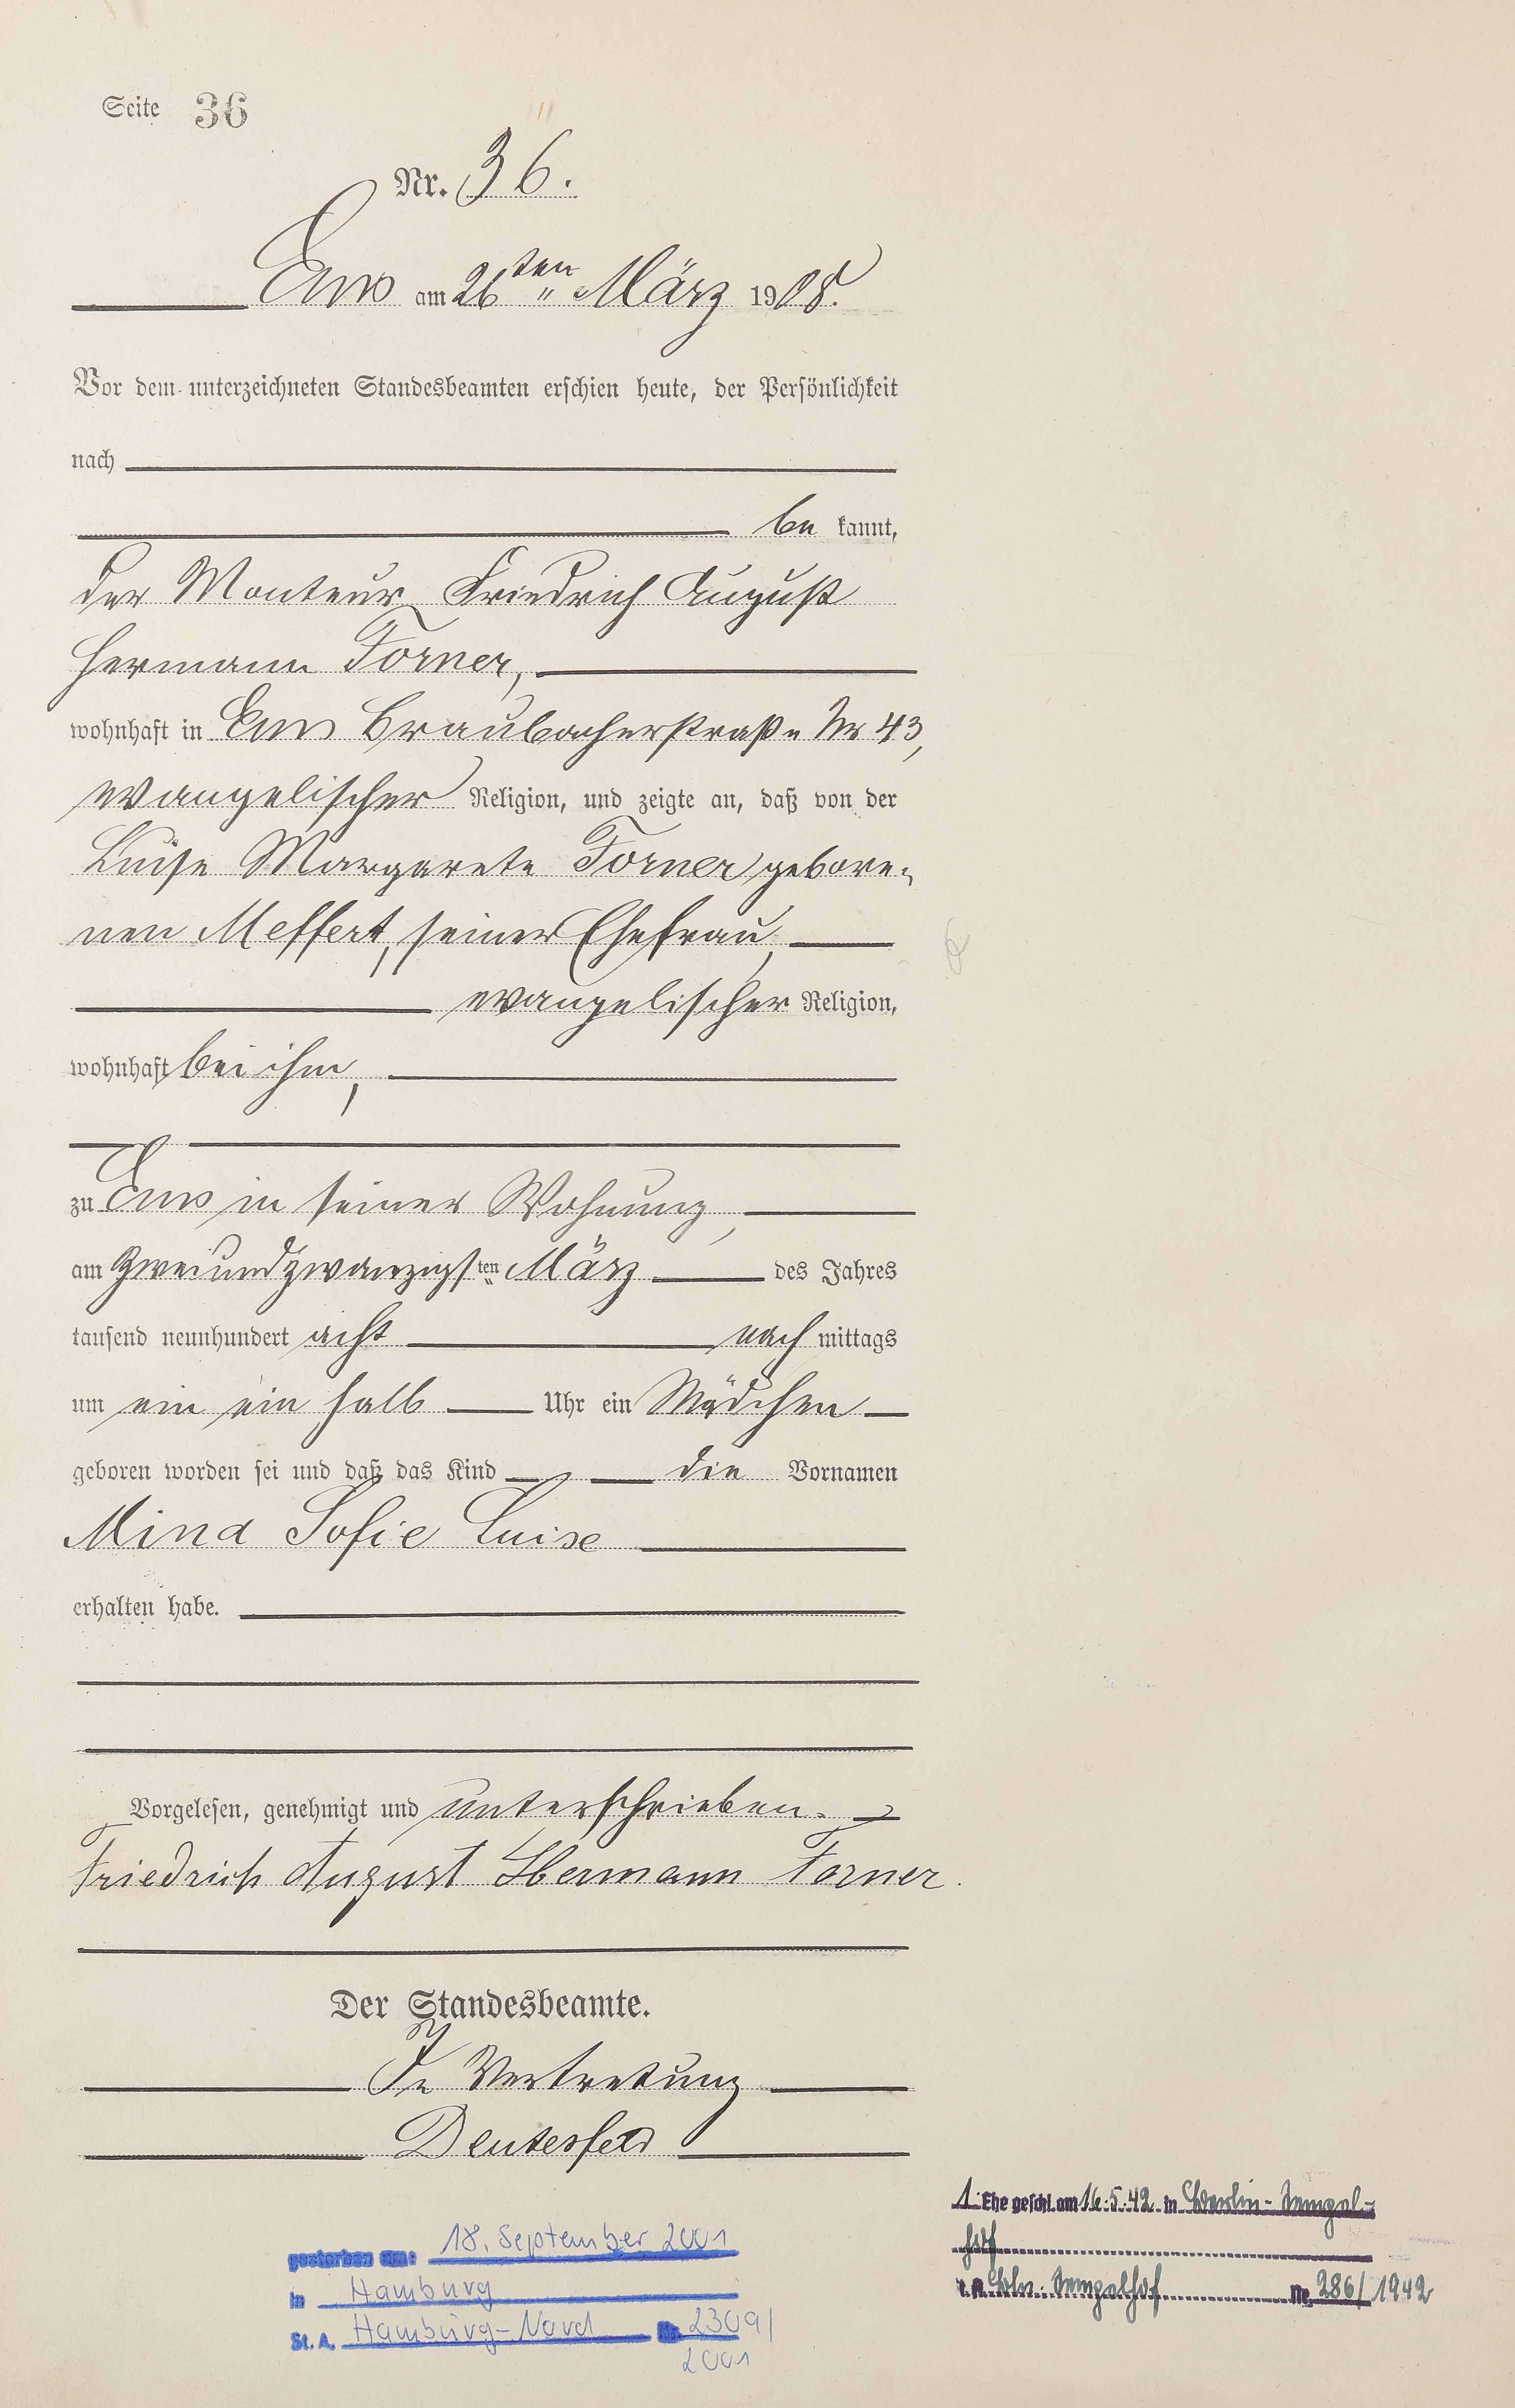 Seite 36
Nr. 36.
Ems am 26ten März 1908.
Vor dem unterzeichneten Standesbeamten erschien heute, der Persönlichkeit
nach
be kannt,
der Monteur Friedrich August
Hermann Forner,
wohnhaft in Ems Braubacherstraße Nr 43,
evangelischer Religion, und zeigte an, daß von der
Luise Margarete Forner gebore-
nen Meffert, seiner Ehefrau,
evangelischer Religion,
wohnhaft bei ihm,
zu Ems in seiner Wohnung,
am zweiundzwanzigsten März des Jahres
tausend neunhundert acht nach mittags
um ein ein halb Uhr ein Mädchen
geboren worden sei und daß das Kind die Vornamen
Mina Sofie Luise
erhalten habe.
Vorgelesen, genehmigt und unterschrieben.
Friedrich August Hermann Forner.
Der Standesbeamte.
In Vertretung
Deutesfeld
1. Ehe geschl. am 16.5.42 in Berlin-Tempel-
hof
St. A. Bln. Tempelhof Nr. 286/1942
gestorben am: 18. September 2001
in Hamburg
St. A. Hamburg-Nord Nr. 2309/
2001